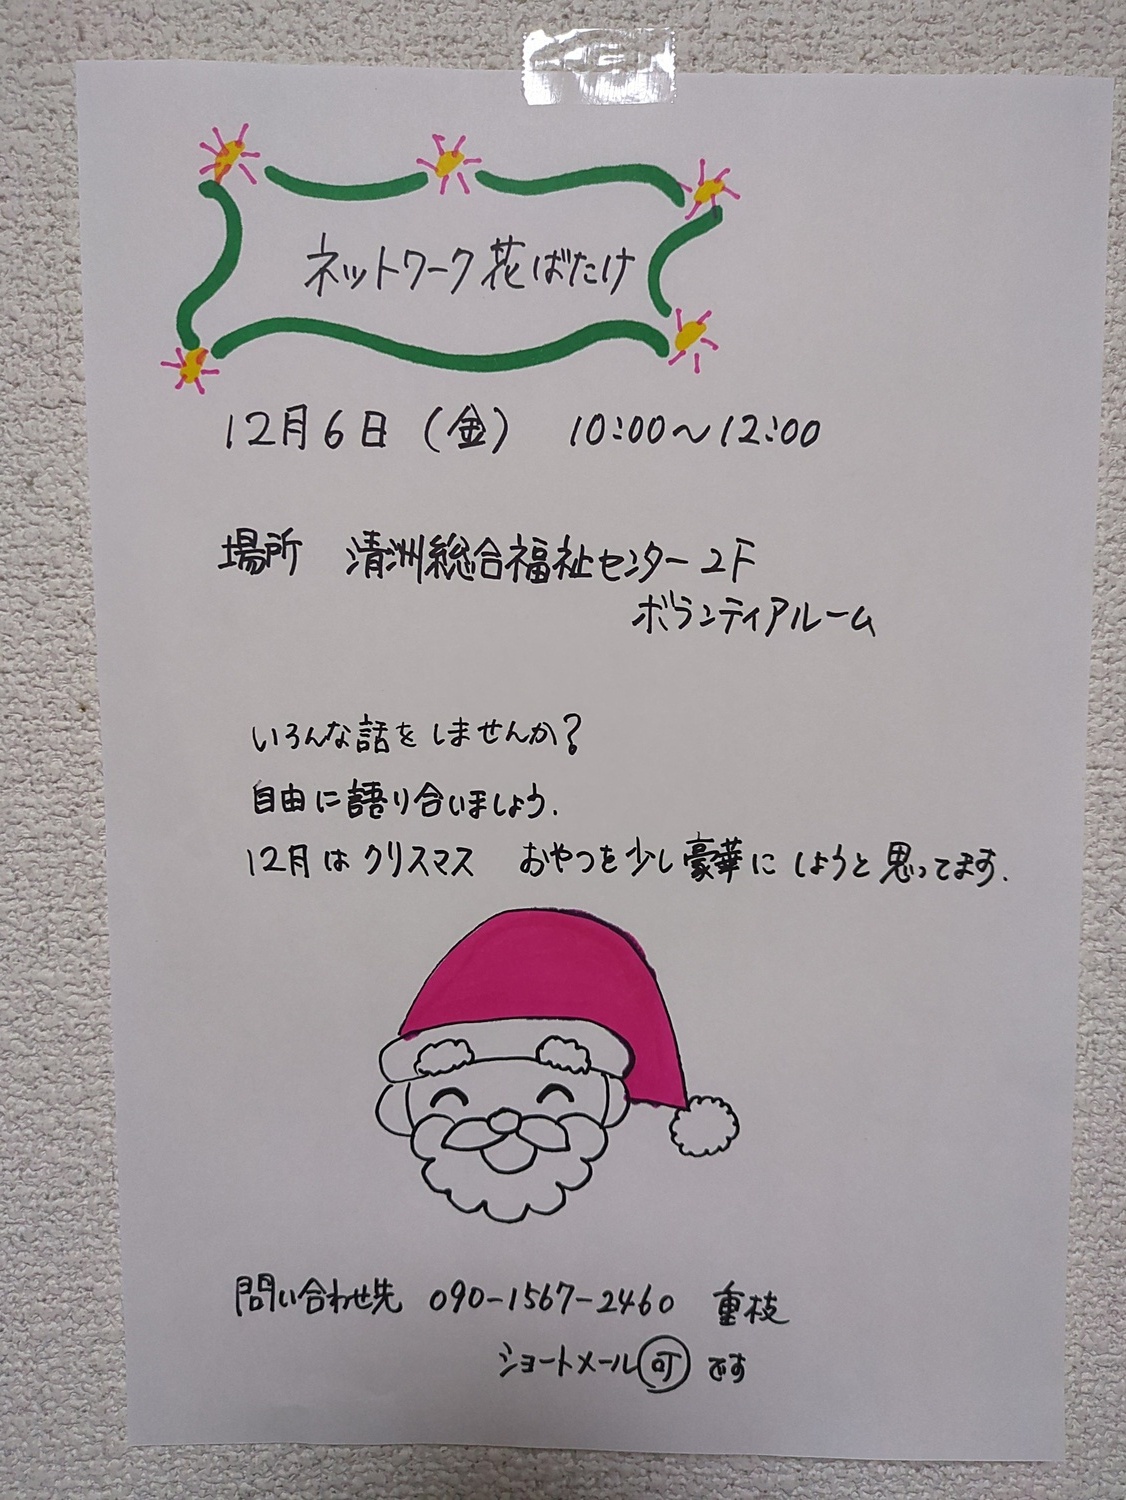 ネットワーク花ばたけ
12月6日（金） 10:00～12:00
場所 清洲総合福祉センター2F
ボランティアルーム
いろんな話をしませんか?
自由に語り合いましょう.
12月はクリスマス おやつを少し豪華にしようと思ってます.
問い合わせ先 090-1567-2460 重枝
ショートメール可です